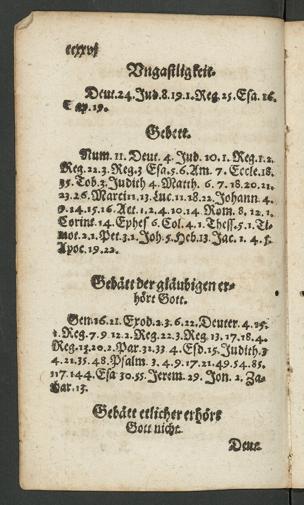 ccxxvj
Vngastligkeit.
Deut.24.Jud.8.19.1.Reg.25.Esa.16.
Cap.19.
Gebett.
Num.11.Deut.4.Jud.10.1.Reg.1.2.
Reg.22.3.Reg.3 Esa.5.6.Am.7.Eccle.18.
35.Tob.3.Judith 4.Matth.6.7.18.20.21.
23.26.Marci 11.13.Luc.11.18.22.Johann.4.
9.14.15.16.Act.1.2.4.10.14 Rom.8.12.1.
Corint.14.Ephes 6.Col.4.1.Thess.5.1.Ti-
mot.2.1.Pet.3.1.Joh.5.Heb.13.Jac.1.4.5.
Apoc.19.22.
Gebätt der gläubigen er-
hört Gott.
Gen.16.21.Exod.2.3.6.22.Deuter.4.15.
1.Reg.7.9.12.2.Reg.22.3.Reg.13.17.18.4.
Reg.13.20.2.Par.32.33.4.Esd.15.Judith.3
4.21.35.48.Psalm.3.4.9.17.21.49.54.85.
117.144.Esa.30.55.Jerem.29.Jon.2.Za-
har.13.
Gebätt etlicher erhört
Gott nicht.
Deut.